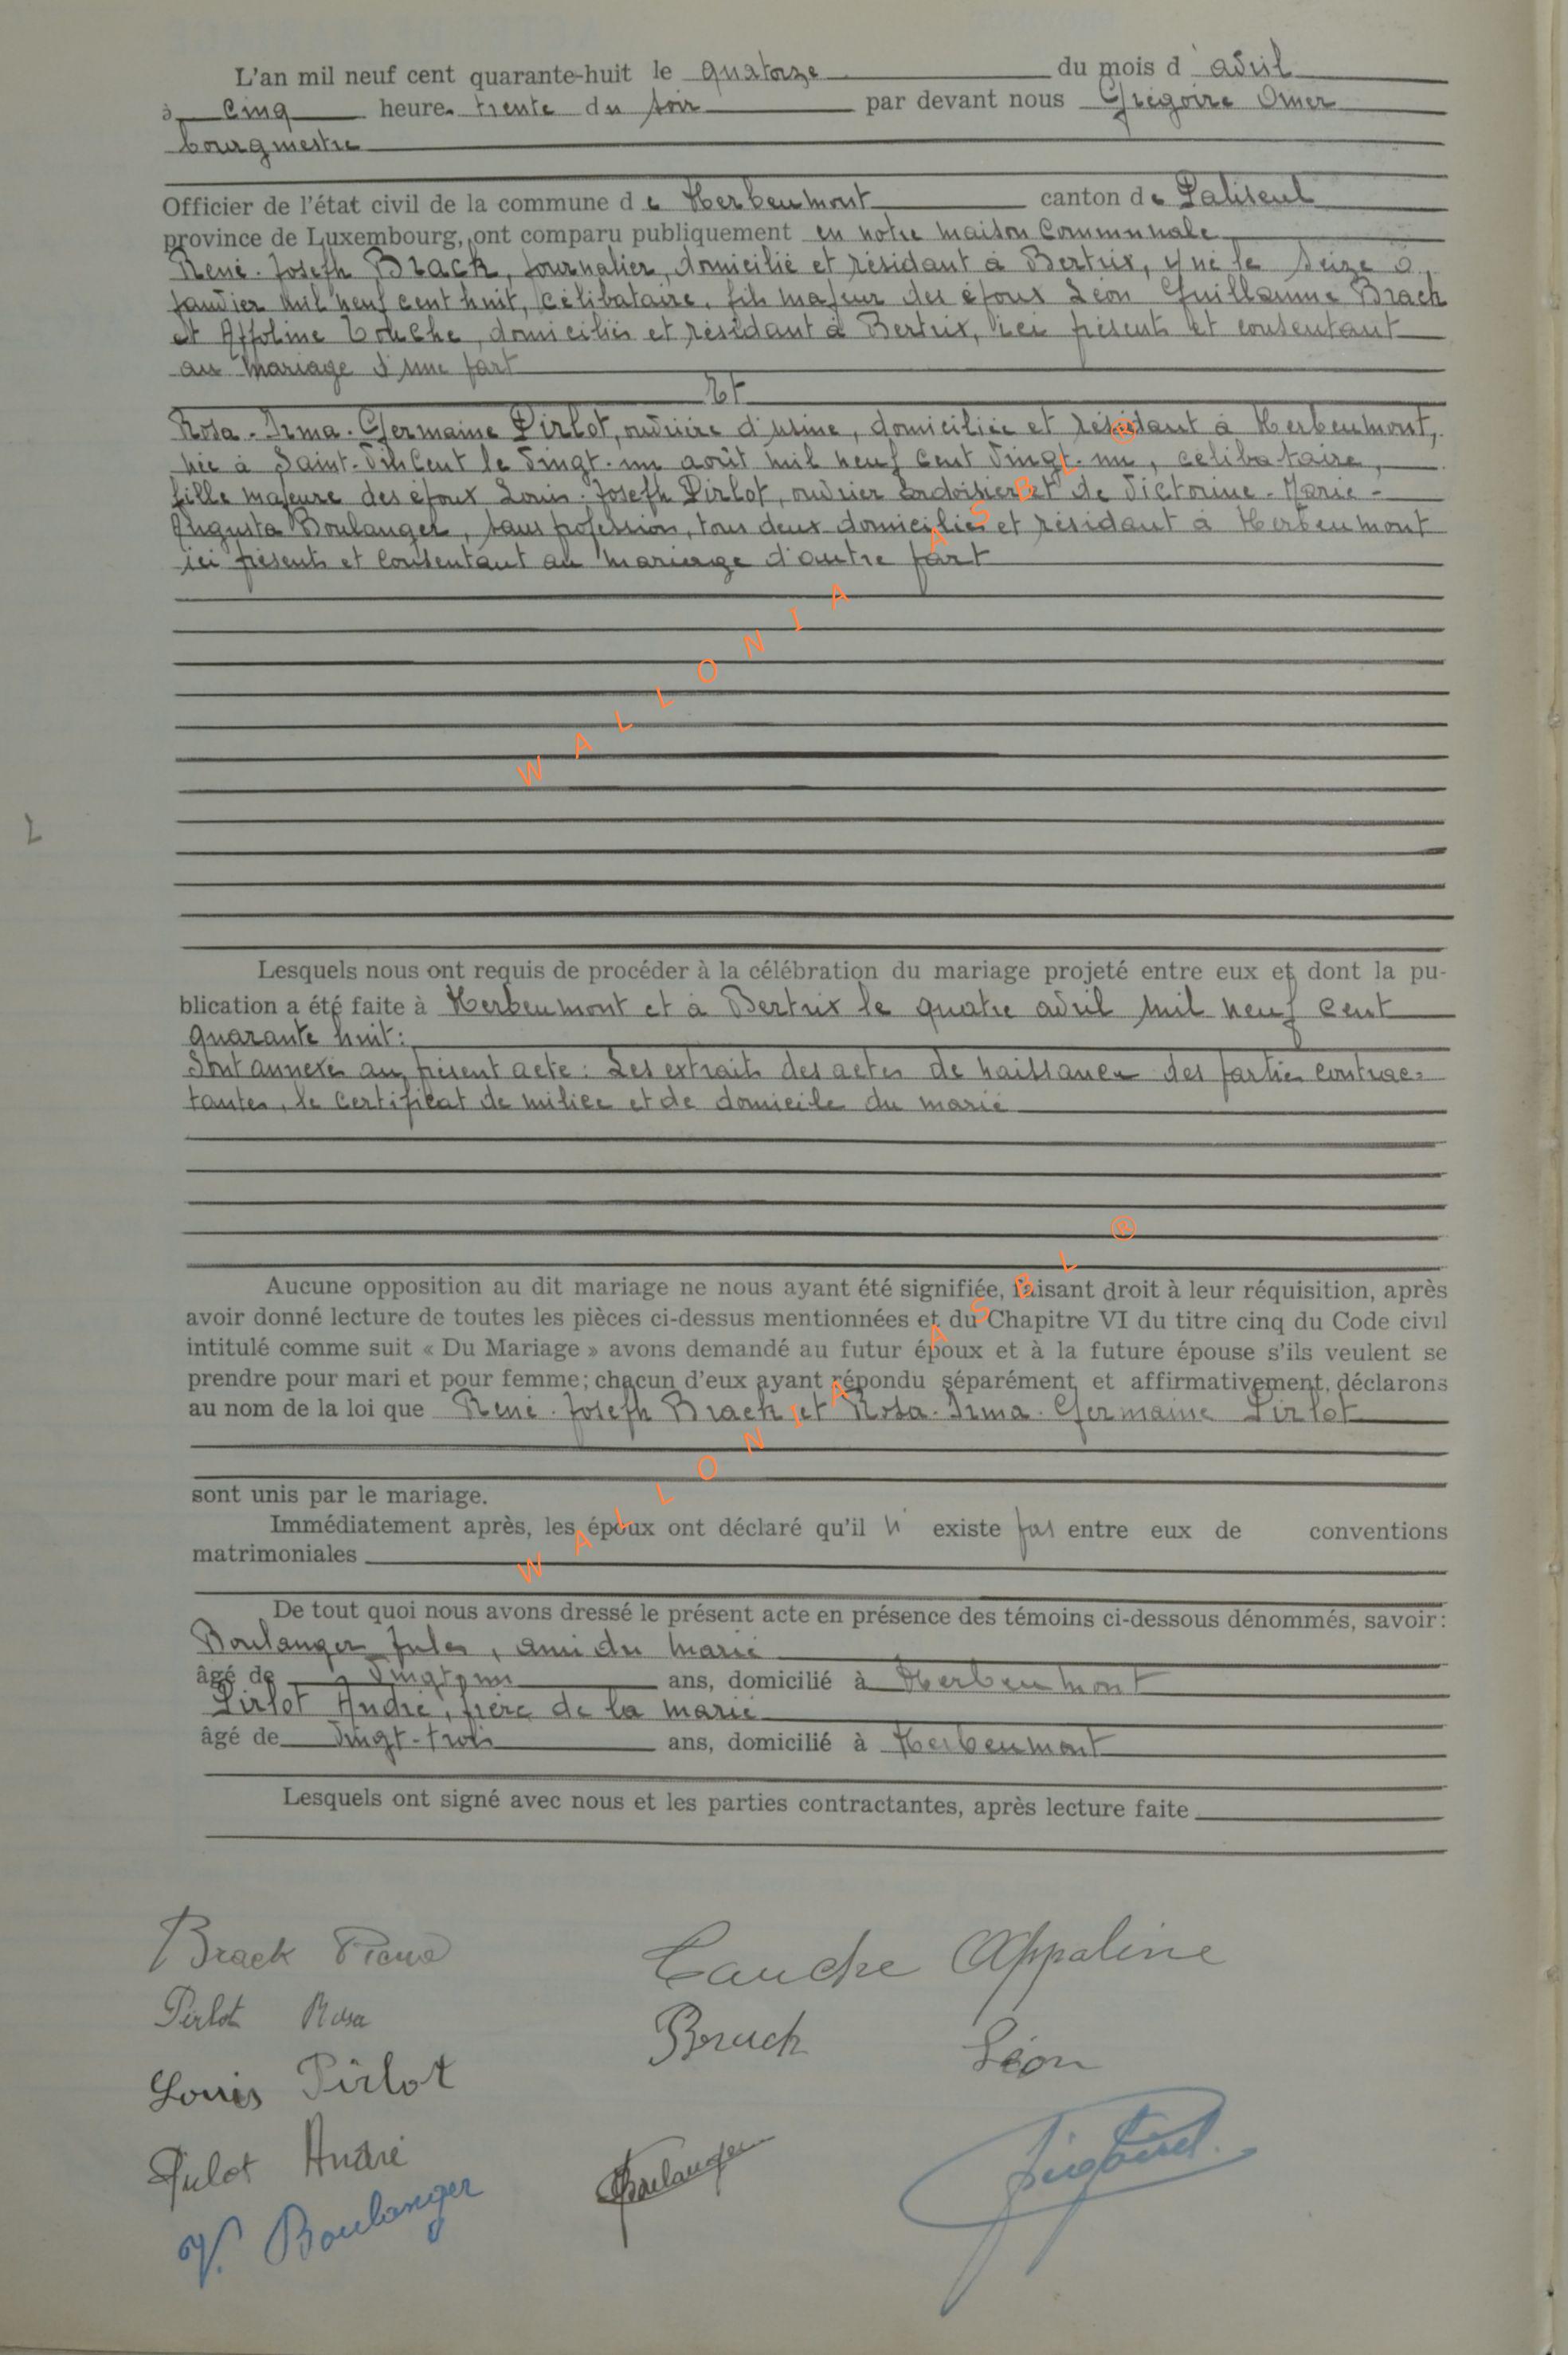 L'an mil neuf cent quarante-huit le quatorze du mois d'avril
à cinq heures trente du soir par devant nous Grégoire Omer
bourgmestre
Officier de l'état civil de la commune de Herbeumont canton de Paliseul
province de Luxembourg, ont comparu publiquement en notre maison Communale
René-Joseph Brack, journalier, domicilié et résidant à Bertrix, y né le seize
janvier mil neuf cent huit, célibataire, fils majeur des époux Léon Guillaume Brack
et Appoline Couche, domiciliés et résidant à Bertrix, ici présents et consentant
au mariage d'une part
Et
Rosa-Irma-Germaine Pirlot, ouvrière d'usine, domiciliée et résidant à Herbeumont,
née à Saint-Vincent le vingt-un août mil neuf cent vingt-un, célibataire,
fille majeure des époux Louis-Joseph Pirlot, ouvrier ardoisier et de Victorine-Marie-
Augusta Boulanger, sans profession, tous deux domiciliés et résidant à Herbeumont
ici présents et consentant au mariage d'autre part
2
Lesquels nous ont requis de procéder à la célébration du mariage projeté entre eux et dont la pu-
blication a été faite à Herbeumont et à Bertrix le quatre avril mil neuf cent
quarante huit:
Sont annexés au présent acte: Les extraits des actes de naissances des parties contrac-
tantes, le certificat de milice et de domicile du marié
Aucune opposition au dit mariage ne nous ayant été signifiée, faisant droit à leur réquisition, après
avoir donné lecture de toutes les pièces ci-dessus mentionnées et du Chapitre VI du titre cinq du Code civil
intitulé comme suit « Du Mariage » avons demandé au futur époux et à la future épouse s'ils veulent se
prendre pour mari et pour femme; chacun d'eux ayant répondu séparément et affirmativement, déclarons
au nom de la loi que René-Joseph Brack et Rosa-Irma-Germaine Pirlot
sont unis par le mariage.
Immédiatement après, les époux ont déclaré qu'il n'existe pas entre eux de conventions
matrimoniales
De tout quoi nous avons dressé le présent acte en présence des témoins ci-dessous dénommés, savoir:
Boulanger Jules, ami du marié
âgé de vingt-un ans, domicilié à Herbeumont
Pirlot André, frère de la marié
âgé de vingt-trois ans, domicilié à Herbeumont
Lesquels ont signé avec nous et les parties contractantes, après lecture faite
Brack René Couche Appoline
Pirlot Rosa Brack Léon
Louis Pirlot
Pirlot André Boulanger
V. Boulanger
WALLONIA ASBL ®
WALLONIA ASBL ®